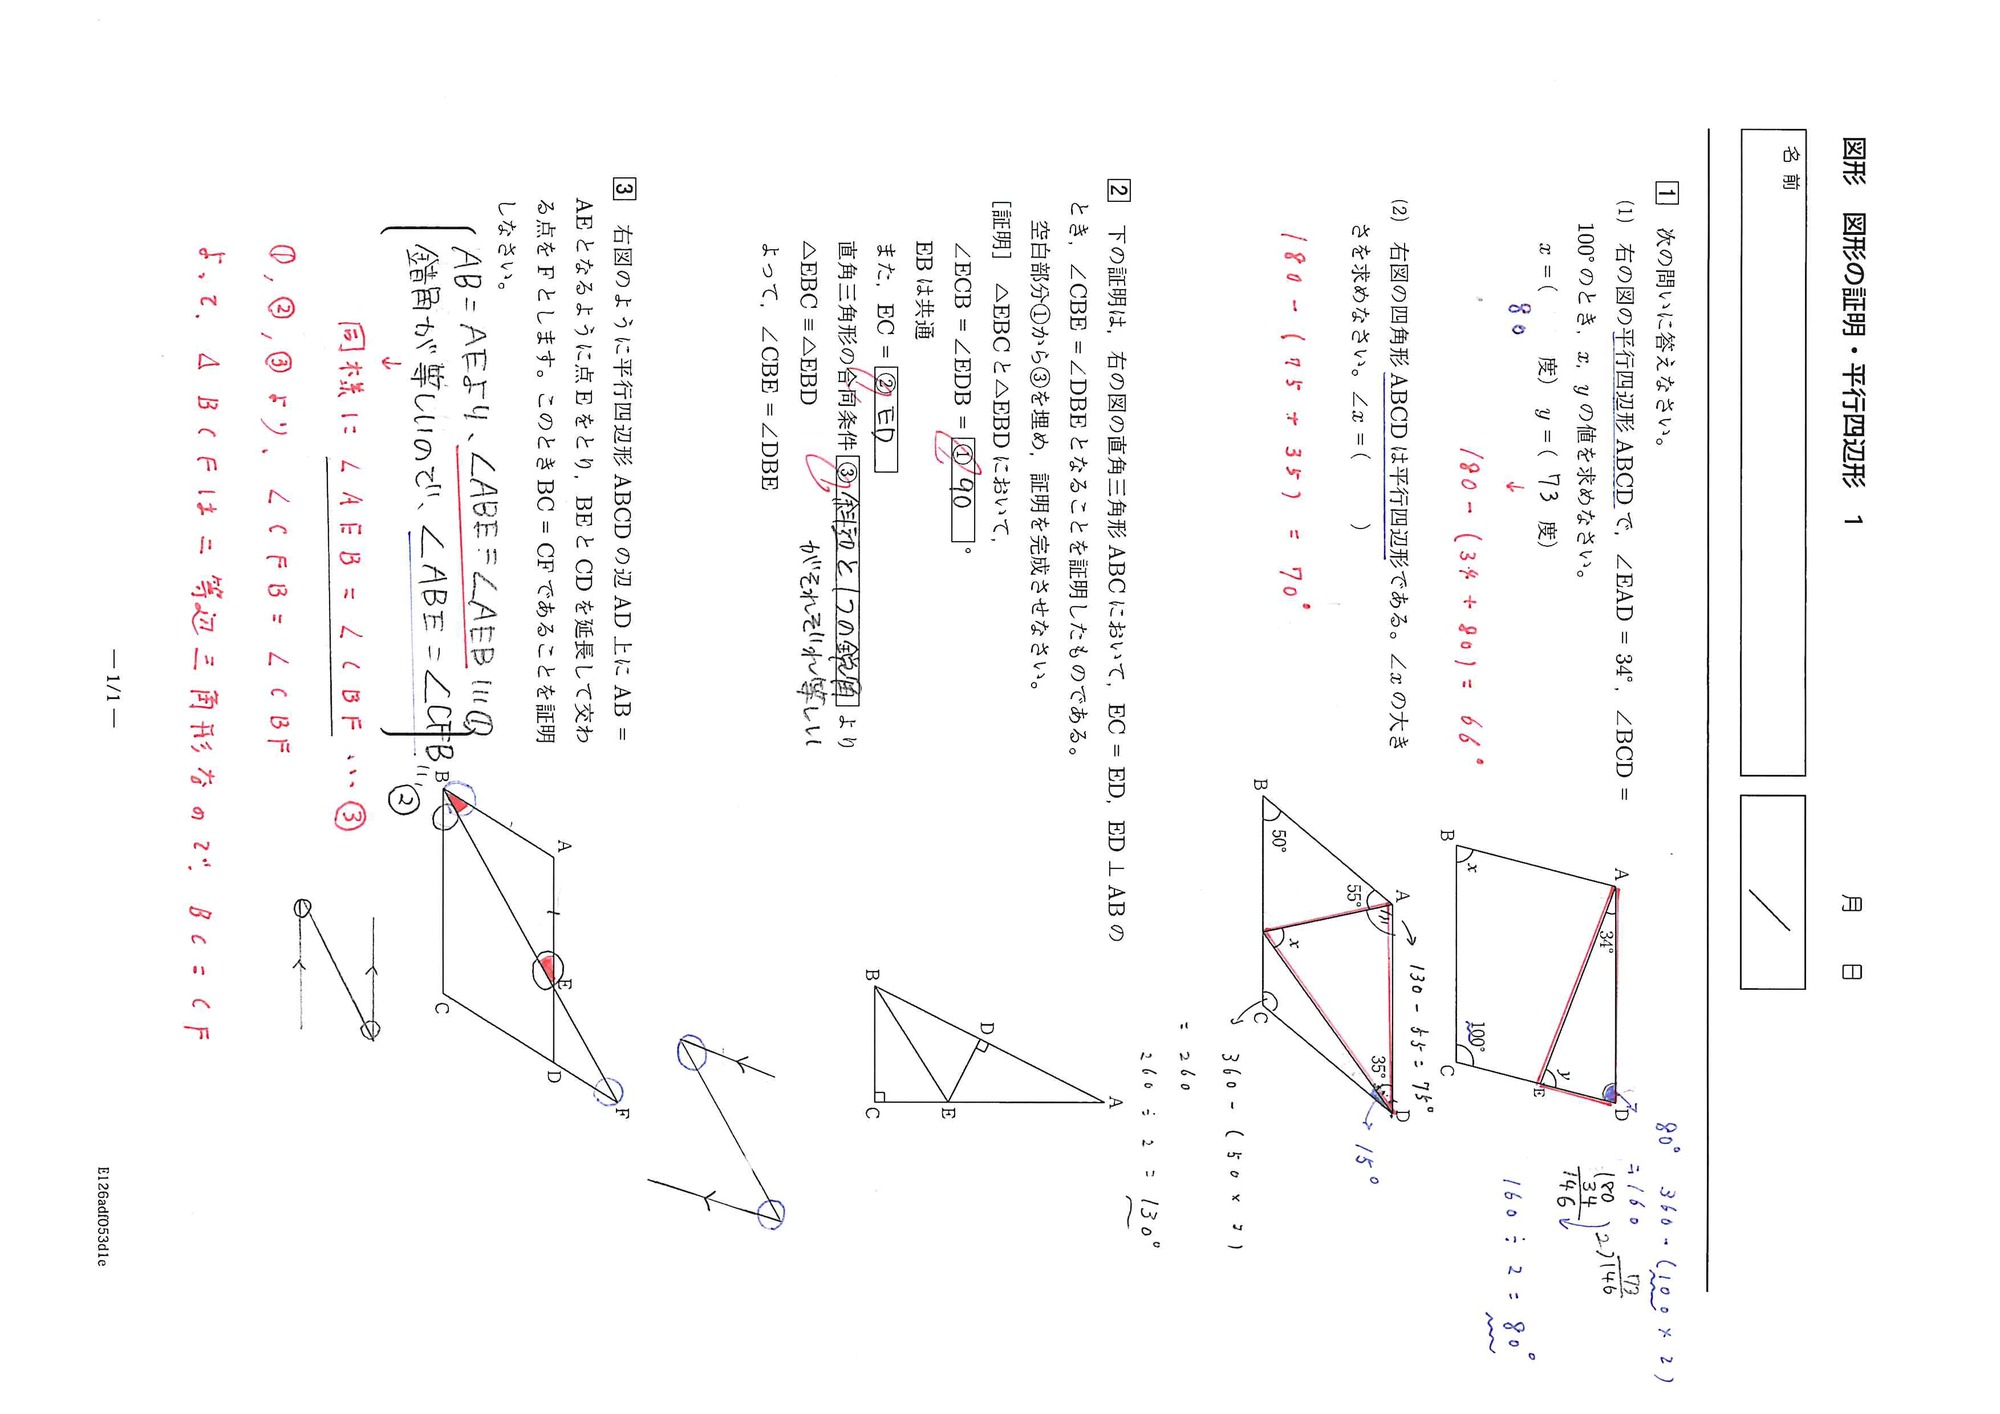 図形　図形の証明・平行四辺形　1
月　日
名前
1　次の問いに答えなさい。
(1)　右の図の平行四辺形ABCDで，∠EAD＝34°，∠BCD＝
100°のとき，x，yの値を求めなさい。
x＝(　度)　y＝(　73　度)
80
↓
180－(34＋80)＝66°
A
B
C
D
E
34°
x
100°
y
80°　360－(100×2)
＝160
180
34
146
2)146
73
160÷2＝80°
(2)　右図の四角形ABCDは平行四辺形である。∠xの大き
さを求めなさい。∠x＝(　　)
180－(75＋35)＝70°
A
B
C
D
50°
55°
x
35°
→130－55＝75°
→15°
360－(50×2)
＝260
260÷2＝130°
2　下の証明は，右の図の直角三角形ABCにおいて，EC＝ED，ED⊥ABの
とき，∠CBE＝∠DBEとなることを証明したものである。
空白部分①から③を埋め，証明を完成させなさい。
[証明]　△EBCと△EBDにおいて，
∠ECB＝∠EDB＝①90　°
EBは共通
また，EC＝②ED
直角三角形の合同条件③斜辺と1つの鋭角より
がそれぞれ等しい
△EBC≡△EBD
よって，∠CBE＝∠DBE
A
B
C
D
E
3　右図のように平行四辺形ABCDの辺AD上にAB＝
AEとなるように点Eをとり，BEとCDを延長して交わ
る点をFとします。このときBC＝CFであることを証明
しなさい。
AB＝AEより、∠ABE＝∠AEB…①
錯角が等しいので、∠ABE＝∠CFB…②
↓
同様に∠AEB＝∠CBF…③
①,②,③より、∠CFB＝∠CBF
よって、△BCFは二等辺三角形なので、BC＝CF
A
B
C
D
E
F
—1/1—
E126adf053d1e